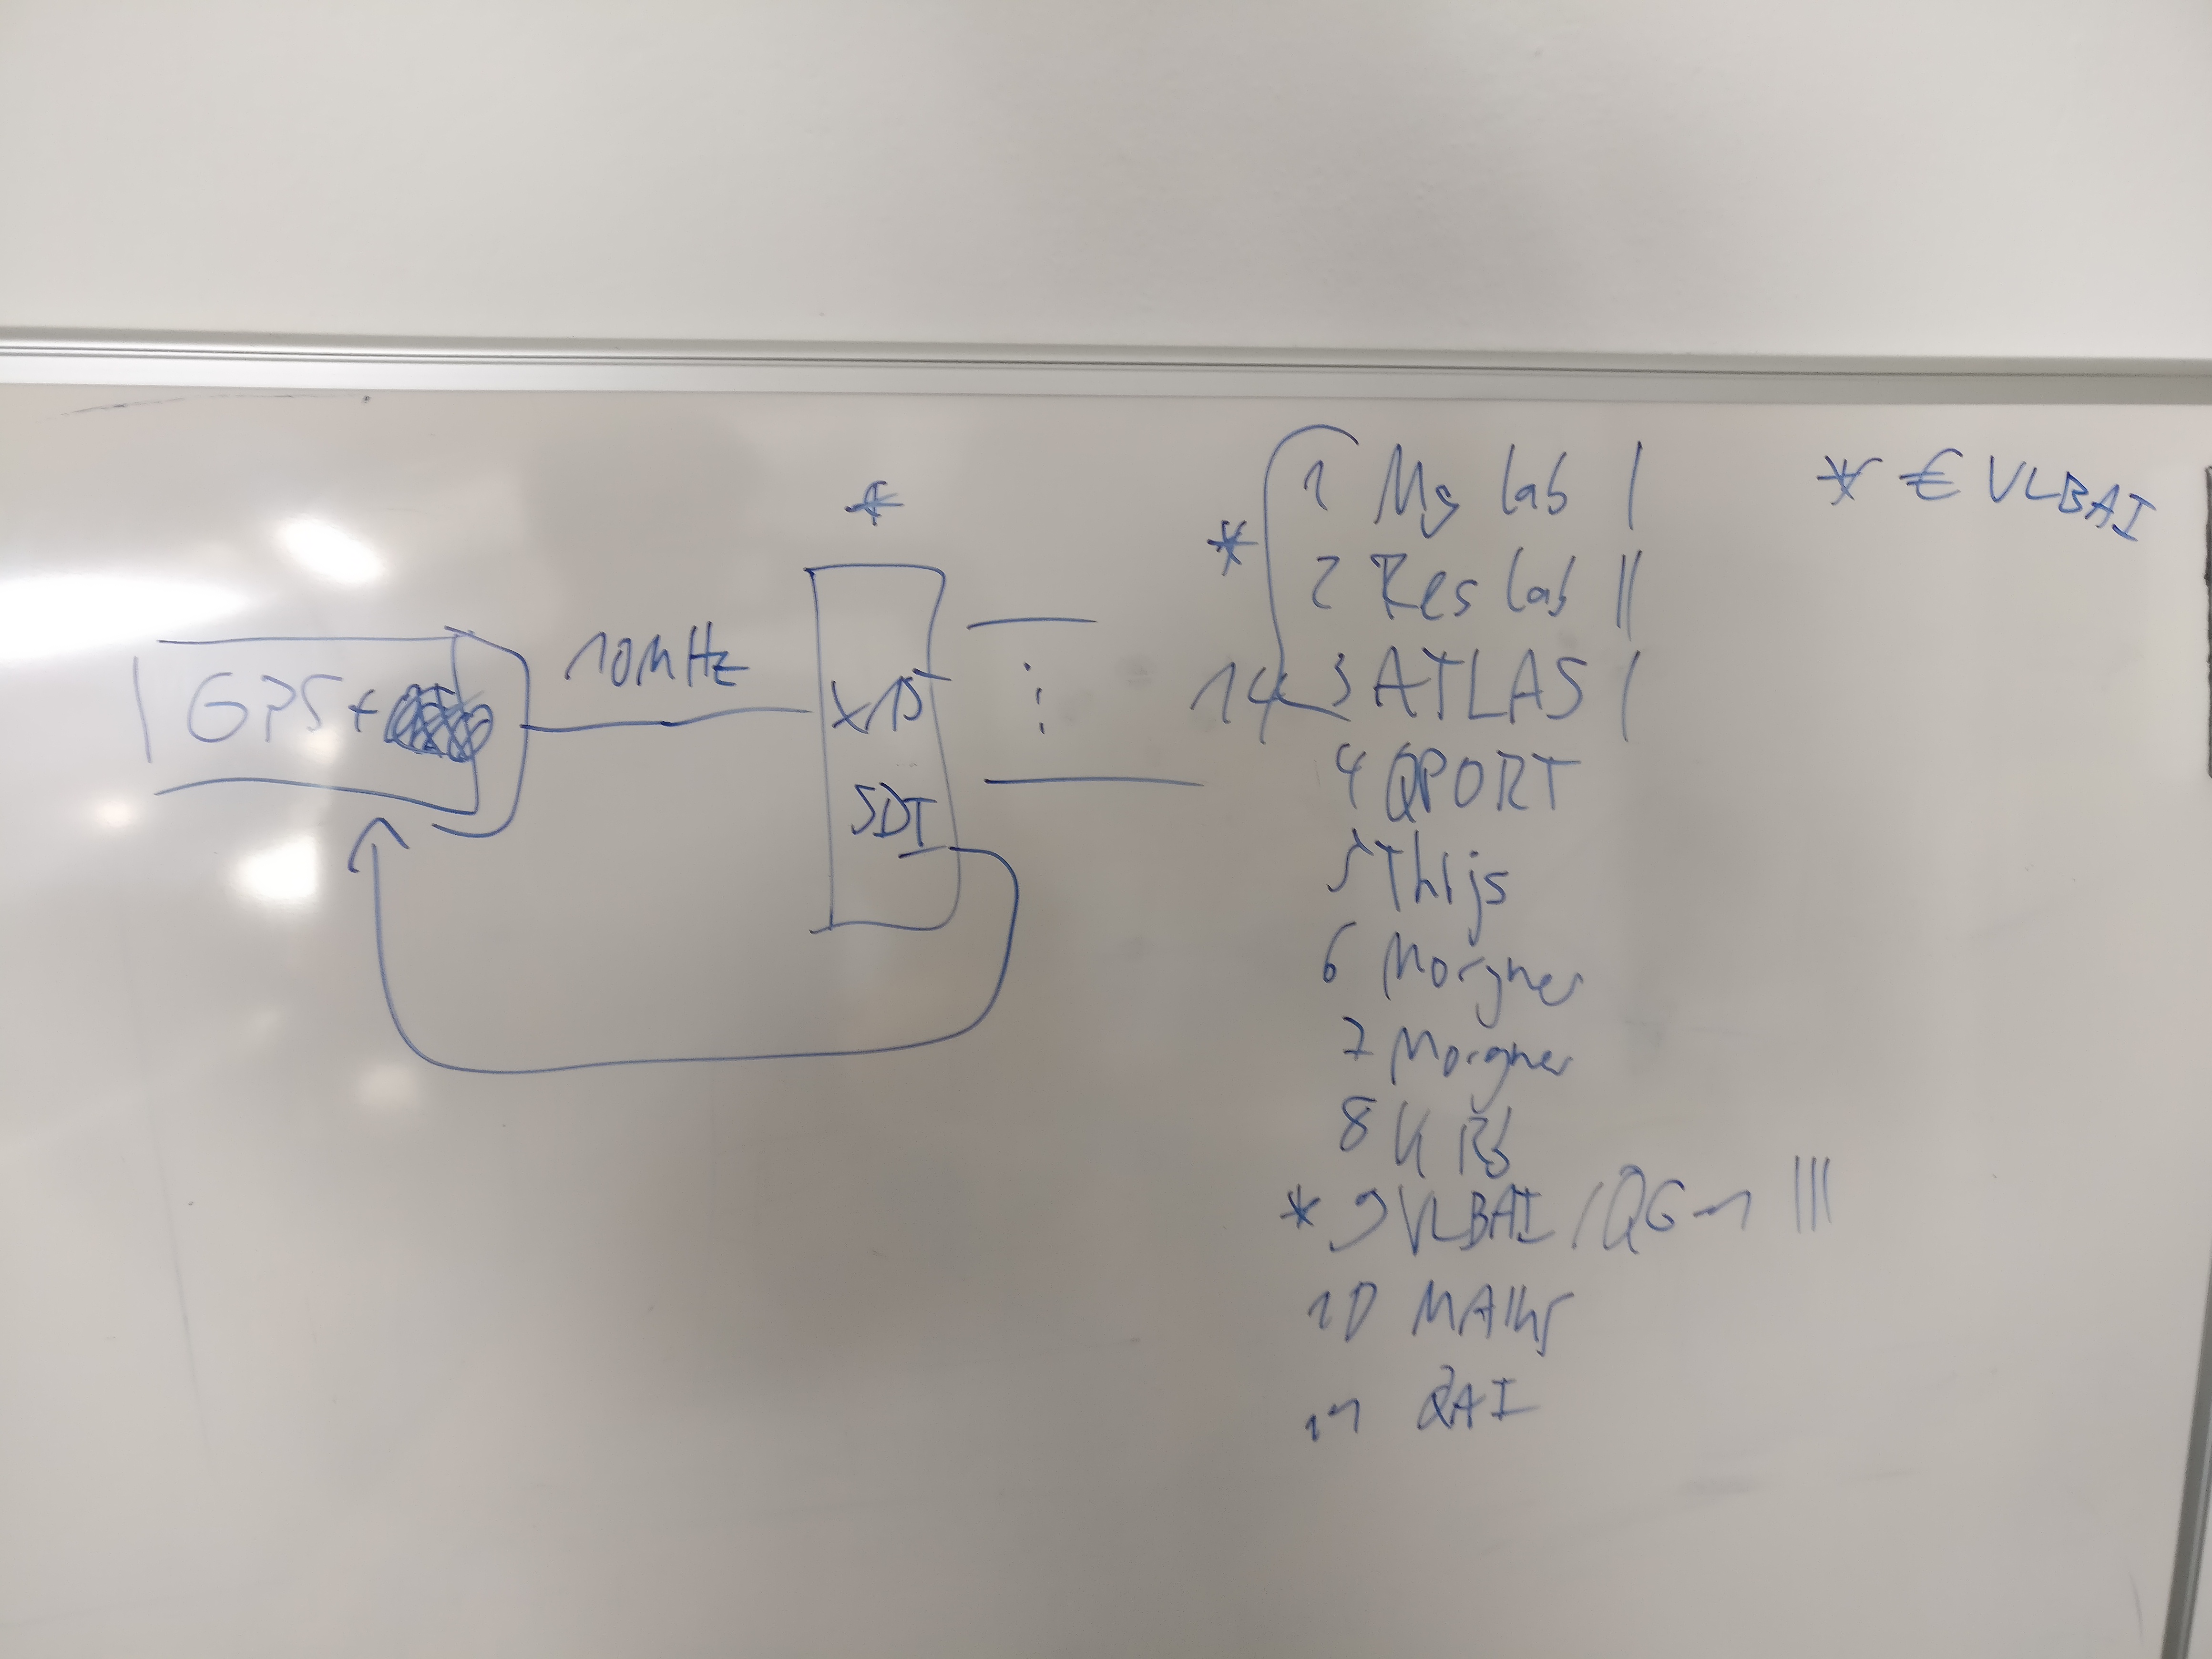 *
GPS +
10MHz
x15
SDI
14
*
1 Mg lab |
2 Res lab ||
3 ATLAS |
4 QPORT
5 Thijs
6 Morgner
7 Morgner
8 K Rb
* 9 VLBAI / QG-1 |||
10 MAIUS
11 QAI
* € VLBAI